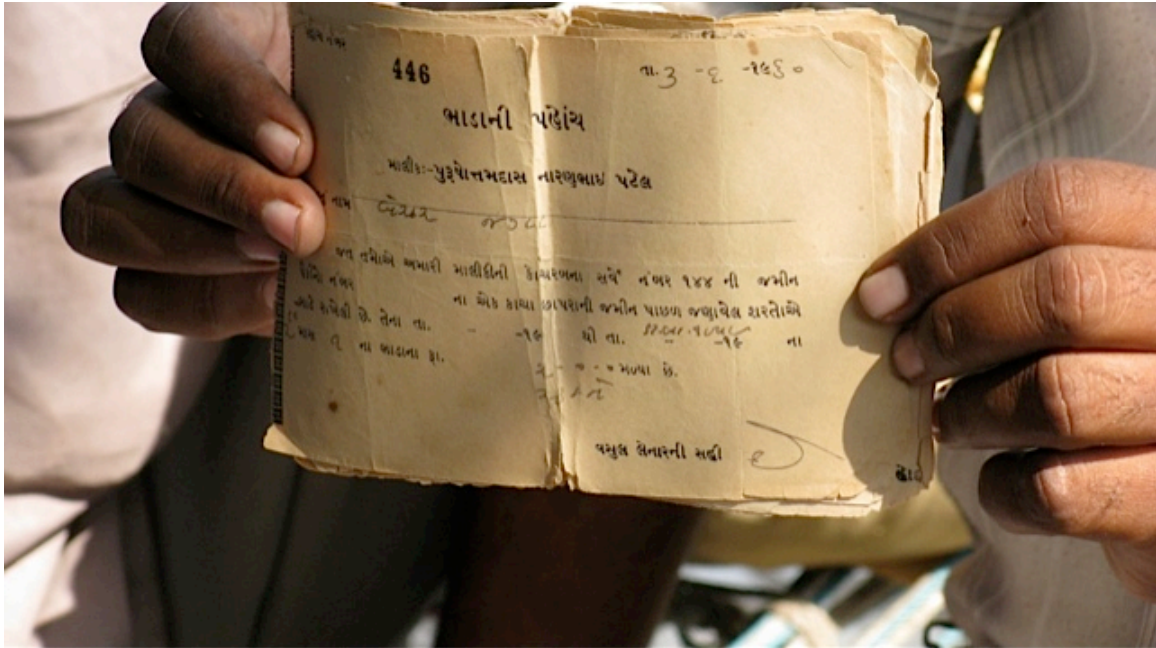 446
તા. ૩ -૬ -૧૯૬૦
ભાડાની પહોંચ
માલીકઃ-પુરૂષોત્તમદાસ નારણભાઇ પટેલ
નામ
જત તમોએ અમારી માલીકીની કાચરબના સર્વે નંબર ૧૪૪ ની જમીન
નંબર ના એક કાચા છાપરાની જમીન પાછળ જણાવેલ શરતોએ
રાખેલી છે. તેના તા. - -૧૯ થી તા. -૧૯ ના
માસ ૧ ના ભાડાના રૂા.
૨-૦-૦ મળ્યા છે.
વસુલ લેનારની સહી